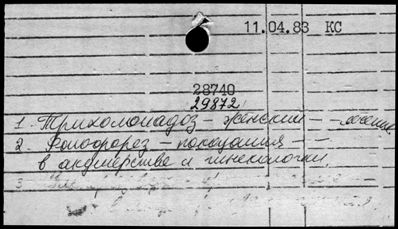 11.04.83 КС
28740
29872
1. Трихомонадоз - женский - - лечение.
2. Фонофорез - показания - -
в акушерстве и гинекологии.
3